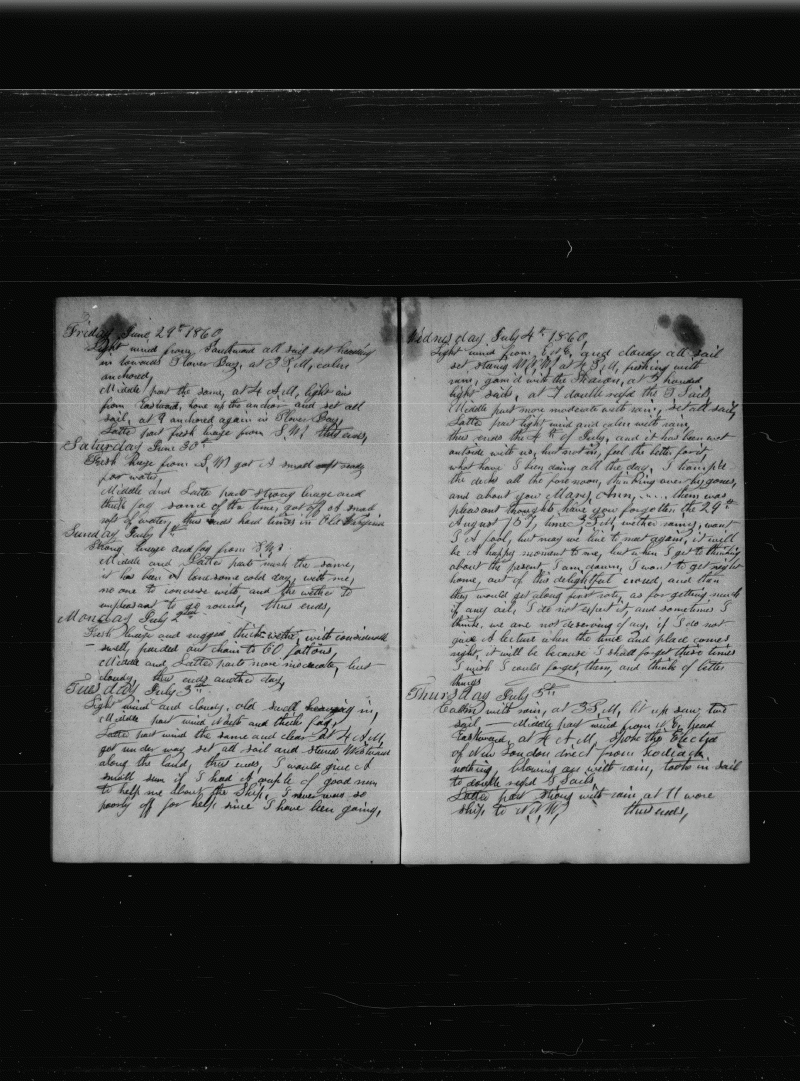 Friday June 29th 1860
Light wind from Southward all sail set heading
in towards Plover Bay, at 3 P,M, calm
anchored,
Middle part the same, at 4 A,M, light air
from Eastward, hove up the anchor and set all
sail, at 9 anchored again in Plover Bay,
Latter part fresh breeze from S,W, thus ends,
Saturday June 30th
Fresh breeze from S,W got A small raft ready
for water,
Middle and Latter parts strong breeze and
thick fog some of the time, got off A small
raft of water, thus ends hard times in Old
Sunday July 1st
Strong breeze and fog from S,W,
Middle and Latter part much the same,
it has been A lonesome cold day, with me,
no one to converse with, and the wether to
unpleasant to go round, thus ends,
Monday July 2nd
Fresh breeze and rugged thick wether, with considerable
swell, paided out chain to 60 fathons,
Middle and Latter parts more moderate, but
cloudy, thus ends another day,
Tuesday July 3rd
Light wind and cloudy, old swell heaveing in,
Middle part wind North and thick fog,
Latter part wind the same and clear at 4 A,M,
got under way set all sail and stered Westward
along the land, thus ends, I would give A
small sum if I had A couple of good men
to help me about the Ship, I never was so
poorly off for help since I have been going,
Wednesday July 4th 1860,
Light wind from and cloudy all sail
set stering at 4 P,M, fresning with
rain, gam'd with the at 5 handed
light sails, at 7 double refd the T Sails,
Middle part more moderate with rain, set all sail,
Latter part light wind and calm with rain,
thus ends the 4th of July, and it has been wet
outside with us, but not in, feel the better for it
what have I been doing all the day, I trampled
the decks all the fore noon, thinking over by gones,
and about you Mary, Ann, .... there was
pleasant thoughts, have you forgotten the 29th
August 1857, time 3 P,M, wether rainy, want
I A fool, but may we live to meet again, it will
be A happy moment to me, but when I get to thinking
about the present, I am down, I want to get right
home, out of this delightful crowd, and then
they would get along first rate, as for getting much
if any oil, I do not expect it, and sometimes I
think, we are not deserving of any, if I do not
give A lecture when the time and place comes
right, it will be because I shall forget these times
I wish I could forget, them, and think of better
things
Thursday July 5th
Calm, with rain, at 3 P,M, let up saw two
sail, — Middle part wind from head
Eastward, at 4 A M, spoke the Electra
of New London direct from Kodiack
nothing blowing air with rain, took in sail
to double refd T Sails,
Latter part strong with rain at 11 wore
ship to thus ends,